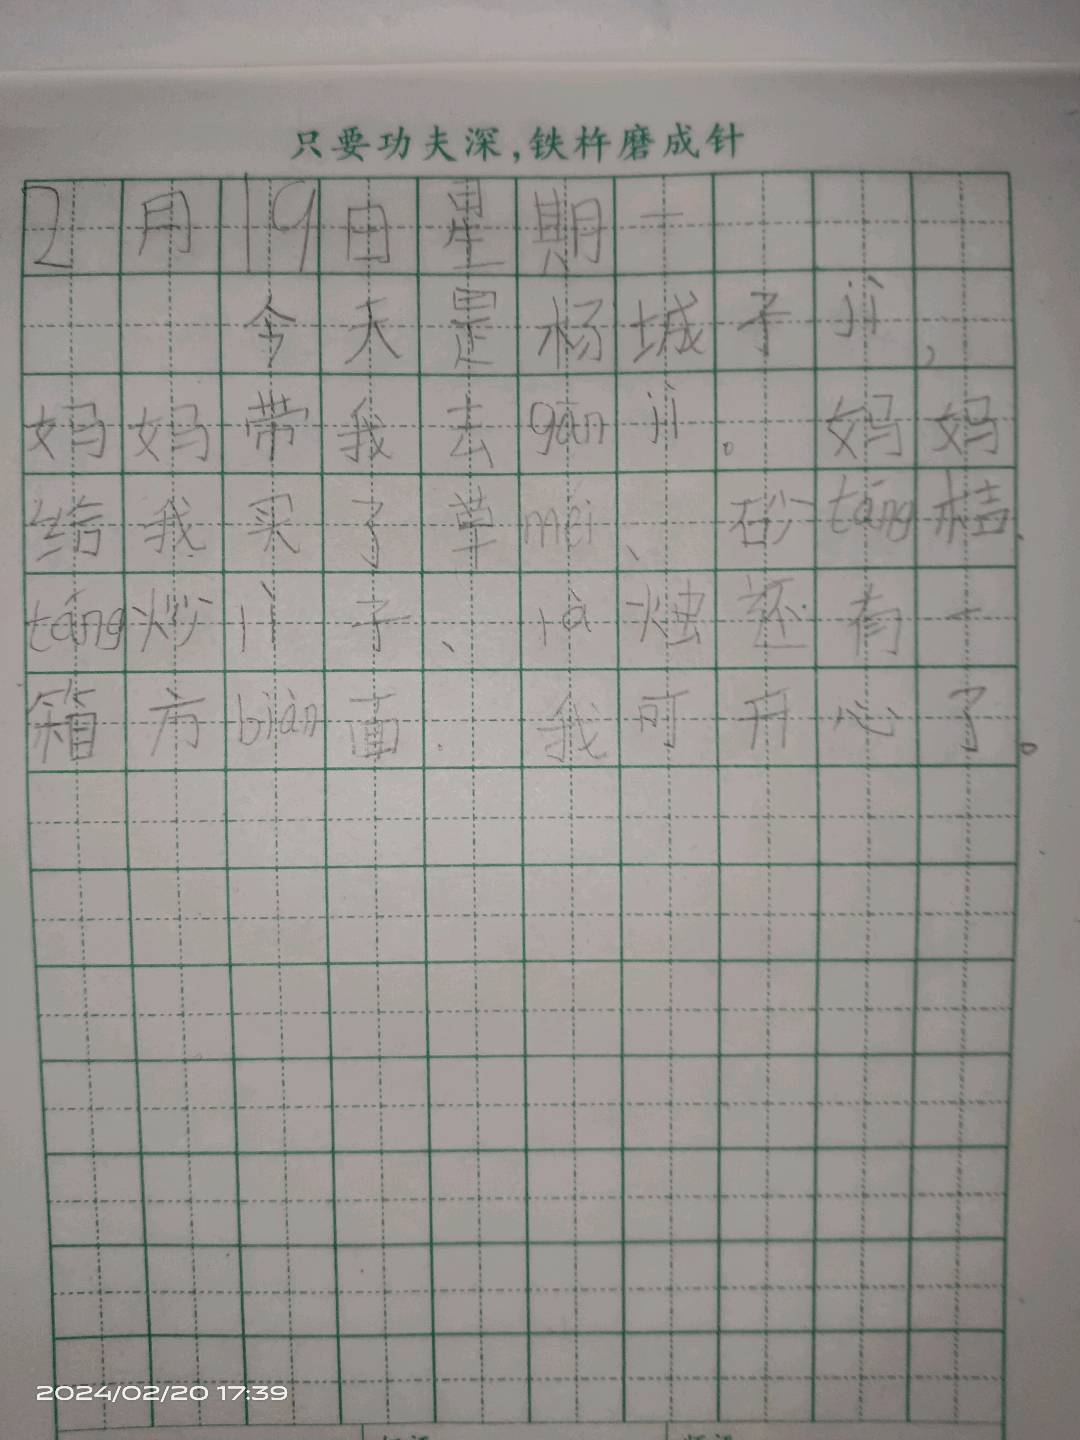 只要功夫深,铁杵磨成针
2月19日星期一
今天是杨城子jí,
妈妈带我去gǎn jí。妈妈
给我买了草méi、砂táng桔、
táng炒lì子、là烛还有一
箱方biàn面.我可开心了。
2024/02/20 17:39